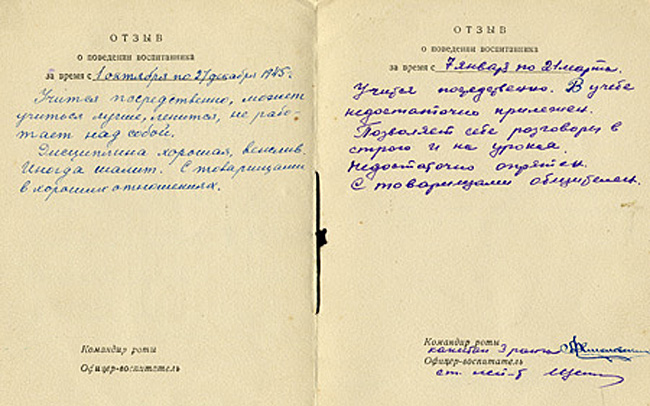 ОТЗЫВ
о поведении воспитанника
за время с 1 октября по 27 декабря 1945г.
Учится посредственно, может
учиться лучше, ленится, не рабо-
тает над собой.
Дисциплина хорошая, вежлив.
Иногда шалит. С товарищами
в хороших отношениях.
Командир роты
Офицер-воспитатель
ОТЗЫВ
о поведении воспитанника
за время с 7 января по 21 марта.
Учится посредственно. В учебе
недостаточно прилежен.
Позволяет себе разговоры в
строю и на уроках.
Недостаточно опрятен.
С товарищами общителен.
Командир роты
капитан 3 ранга
Офицер-воспитатель
ст. лей-т